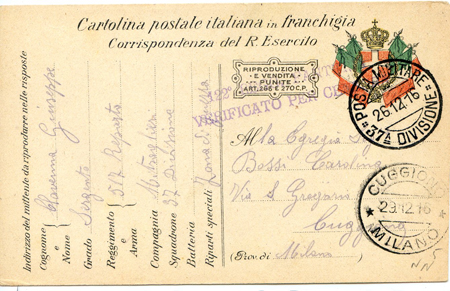 Cartolina postale italiana in franchigia
Corrispondenza del R. Esercito
RIPRODUZIONE
E VENDITA
PUNITE
ART. 266 E 270 C.P.
VERIFICATO PER CE
POSTA MILITARE
26.12.16
37ª DIVISIONE
Alla Egregia
Bossi Carolina
Via S Gregorio
Cuggiono
(Prov. di Milano
CUGGIONO
29.12.16
MILANO
Indirizzo del mittente da riprodurre nelle risposte
Cognome e Nome Giuseppe
Grado Sergente
Reggimento e Arma
Compagnia
Squadrone 37 Divisione
Batteria
Riparti speciali Zona di guerra